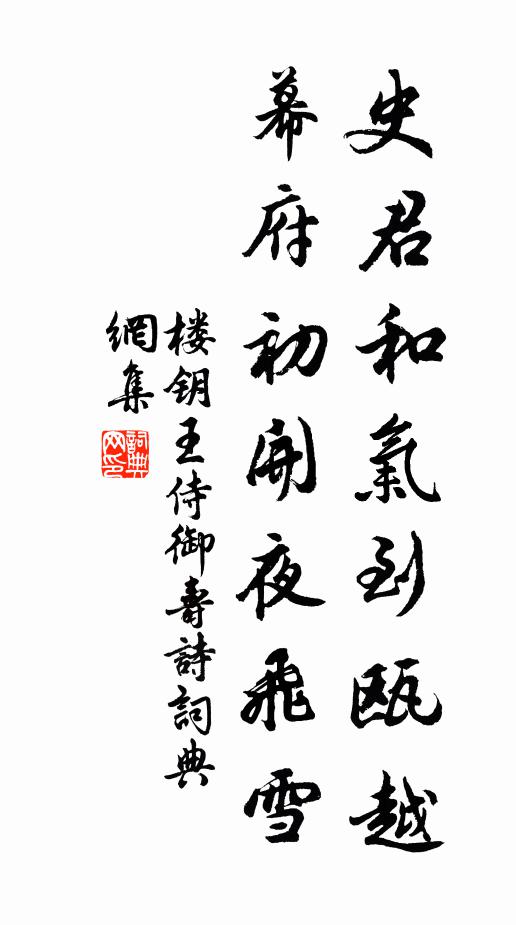 史君和氣到瓯越
幕府初開夜飛雪
楼钥王侍御壽詩詞典
網集
詞典
网印